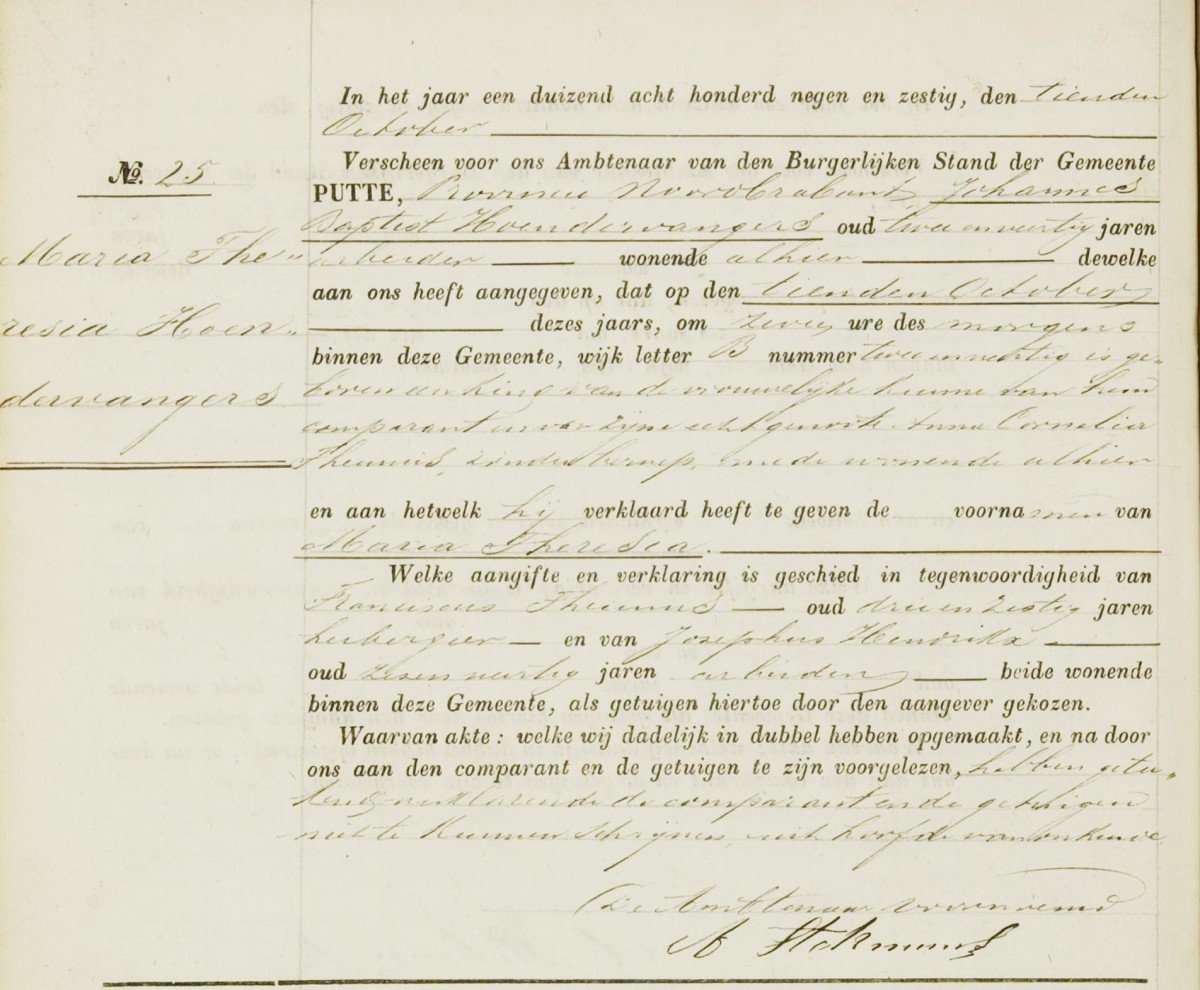 In het jaar een duizend acht honderd negen en zestig, den tienden
October
No. 25
Verscheen voor ons Ambtenaar van den Burgerlijken Stand der Gemeente
PUTTE, Provincie Noordbrabant, Johannes
Baptist Hoendervangers oud twee en veertig jaren
Maria The„
arbeider wonende alhier dewelke
aan ons heeft aangegeven, dat op den tienden October
resia Hoen„
dezes jaars, om zeven ure des morgens
binnen deze Gemeente, wijk letter B nummer twee en veertig is ge„
dervangers
boren een kind van de vrouwelijke kunne van hem
comparant en van zijne echtgenoote Anna Cornelia
Theunis, zonder beroep, mede wonende alhier
en aan hetwelk hij verklaard heeft te geven de voornamen van
Maria Theresia.
Welke aangifte en verklaring is geschied in tegenwoordigheid van
Franciscus Theunis oud drie en zestig jaren
herbergier en van Josephus Hendrikx
oud zes en veertig jaren arbeider beide wonende
binnen deze Gemeente, als getuigen hiertoe door den aangever gekozen.
Waarvan akte: welke wij dadelijk in dubbel hebben opgemaakt, en na door
ons aan den comparant en de getuigen te zijn voorgelezen, hebben getee„
kend, verklarende de comparant en de getuigen
niet te kunnen schrijven, uit hoofde van onkunde.
De Ambtenaar voornoemd